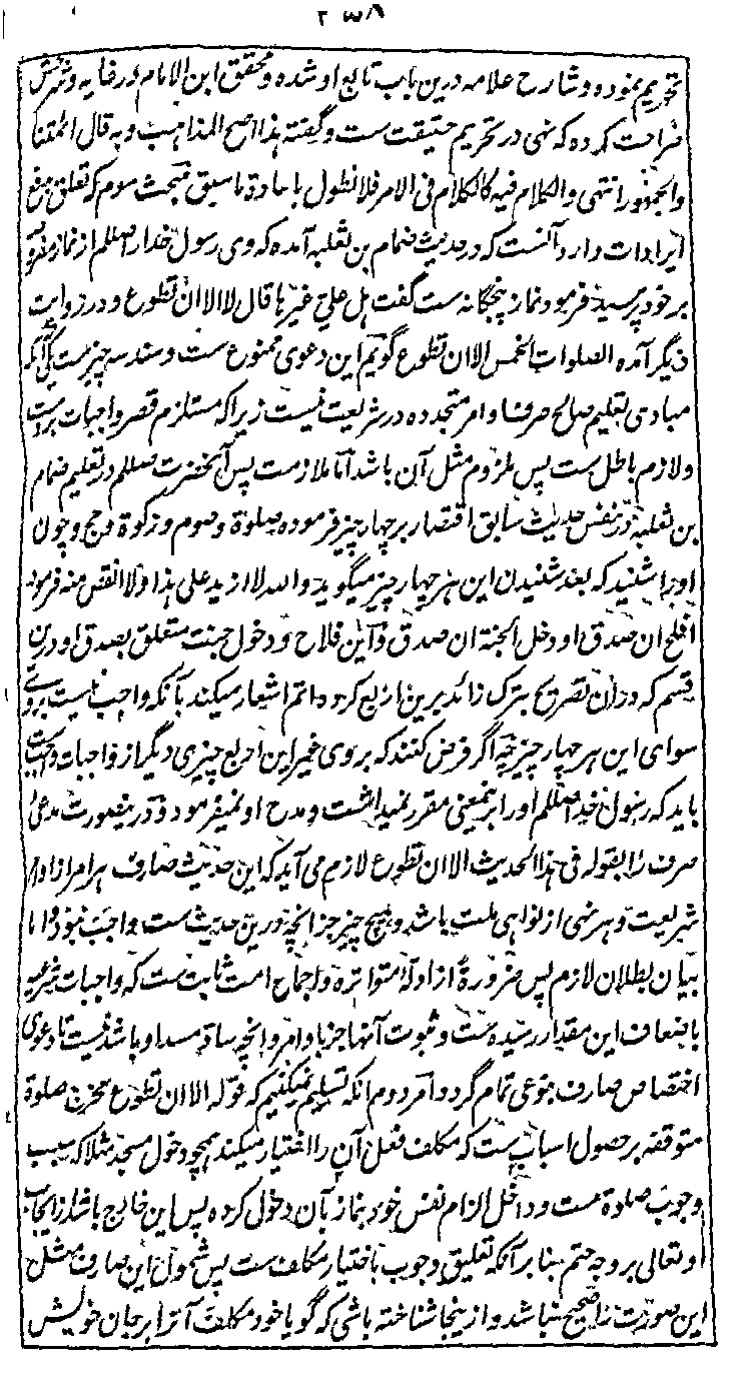 ۳۵۸
تحریم نموده و شارح علامه درین باب تابع او شده و محقق ابن الامام در غایه و شرحش
صراحت کرده که نهی در تحریم حقیقت ست و گفته هذا اصح المذاهب و به قال ائمتنا
والجمهور انتهی والکلام فیه کالکلام فی الامر فلا نطول باعادة ما سبق مبحث سوم که تعلق بدفع
ایرادات دارد آنست که در حدیث ضمام بن ثعلبه آمده که وی رسول خدا را صللم از نماز مفروض
بر خود پرسید فرمود نماز پنجگانه ست گفت هل علی غیرها قال لا الا ان تطوع و در روایت
دیگر آمده الصلوات الخمس الا ان تطوع گوئیم این دعوی ممنوع ست و سند سه چیز ست یکی آنکه
مبادی تعلیم صالح صرف اوامر متجدده در شریعت نیست زیرا که مستلزم قصر واجبات بر ست
و لازم باطل ست پس ملزوم مثل آن باشد اما ملازمت پس آنحضرت صللم در تعلیم ضمام
بن ثعلبه در نفس حدیث سابق اقتصار بر چهار چیز فرموده صلوة و صوم و زکوة و حج و چون
او را شنید که بعد شنیدن این هر چهار چیز میگوید والله لا ازید علی هذا ولا انقص منه فرمود
افلح ان صدق او دخل الجنة ان صدق و این فلاح و دخول جنت متعلق بصدق او درین
قسم که دران تصریح بترک زائد برین اربع کرده اتم اشعار میکند بآنکه واجب نیست بروی
سوای این هر چهار چیز چه اگر فرض کنند که بر وی غیر این اربع چیزی دیگر از واجبات ست
باید که رسول خدا صللم او را برینمعنی مقرر نمیداشت و مدح او نمیفرمود و درینصورت مدعی
صرف را بقوله فی هذا الحدیث الا ان تطوع لازم می آید که این حدیث صارف هر امر از اوامر
شریعت و هر نهی از نواهی ملت باشد و هیچ چیز جز آنچه درین حدیث ست واجب نبود و اما
بیان بطلان لازم پس ضرورةً از ادلهٔ متواتره و اجماع امت ثابت ست که واجبات شرعیه
باضعاف این مقدار رسیده ست و ثبوت آنها جز باوامر و آنچه ساد مسد او باشد نیست تا دعوی
اختصاص صارف بنوعی تمام گردد امر دوم آنکه تسلیم نمیکنیم که قوله الا ان تطوع مخرج صلوة
متوقفه بر حصول اسبابی ست که مکلف فعل آن را اختیار میکند همچو دخول مسجد مثلا که سبب
وجوب صلوة ست و داخل الزام نفس خود بنماز بآن دخول کرده پس این خارج باشد از ایجاب
او تعالی بر وجه حتم بنا بر آنکه تعلیق وجوب باختیار مکلف ست پس شمول این صارف مثل
این صورت را صحیح نباشد و از ینجا شناخته باشی که گویا خود مکلف آنرا بر جان خویش